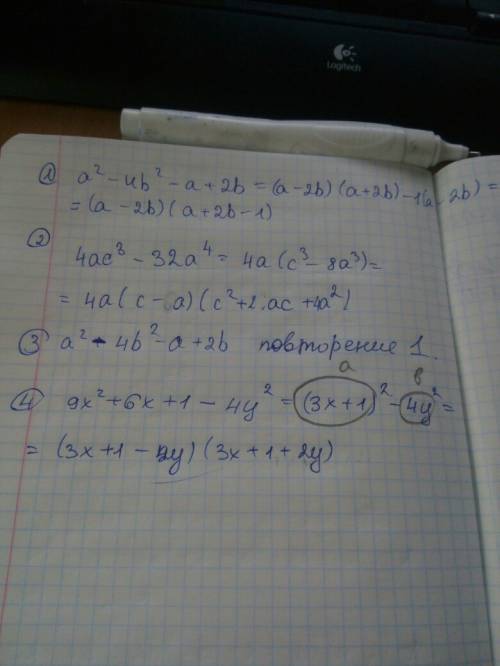 Logitech
① a² - 4b² - a + 2b = (a - 2b)(a + 2b) - 1(a - 2b) =
= (a - 2b)(a + 2b - 1)
②
4ac³ - 32a⁴ = 4a(c³ - 8a³) =
= 4a(c - a)(c² + 2.ac + 4a²)
③ a² - 4b² - a + 2b повторение 1.
a в
④ 9x² + 6x + 1 - 4y² = (3x + 1)² - 4y² =
= (3x + 1 - 2y)(3x + 1 + 2y)